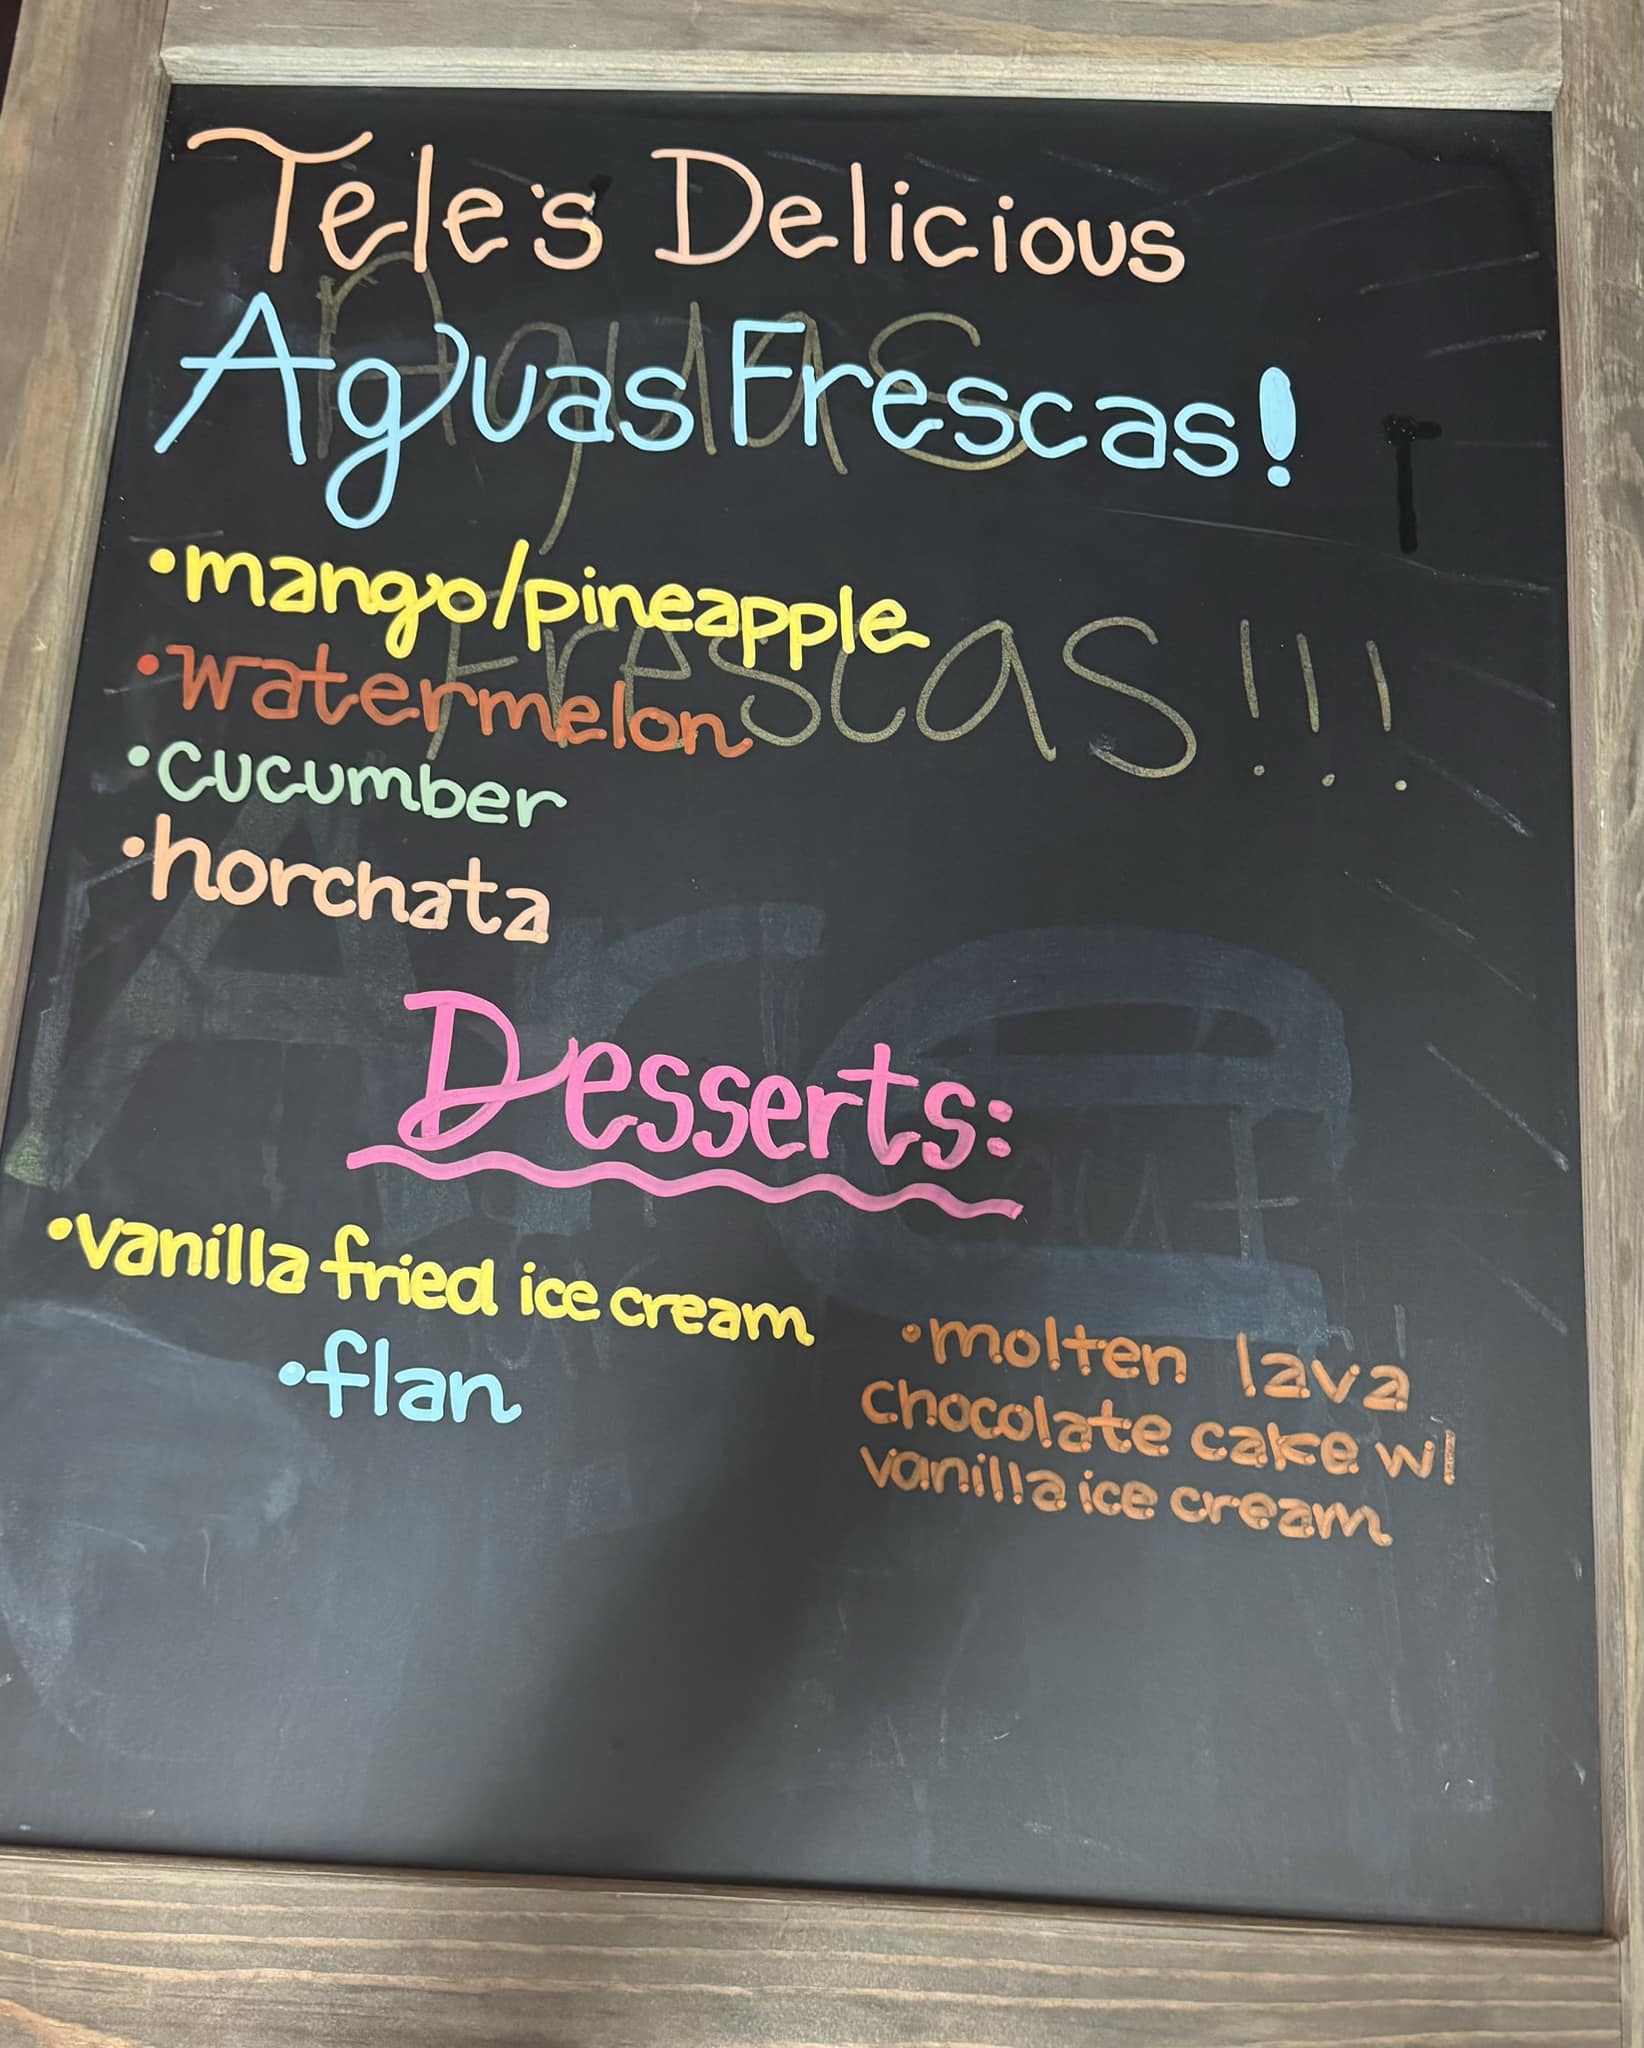 Tele's Delicious
Aguas Frescas!
•mango/pineapple
•watermelon
•cucumber
•horchata
Aguas
Frescas!!!
Desserts:
•vanilla fried ice cream
•flan
•molten lava
chocolate cake w/
vanilla ice cream